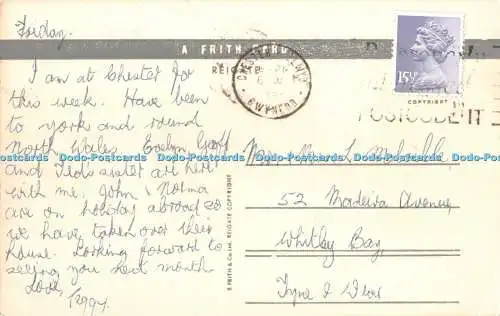 Friday.
A FRITH CARD
REIGATE
I am at Chester for
this week. Have been
to york and round
North Wales. Evelyn, Geoff
and sister are here
with me. John & Norma
are on holiday abroad so
we have taken over their
house. Looking forward to
seeing you next month
Love,
Peggy.
F. FRITH & Co. LTD. REIGATE COPYRIGHT
GWYNEDD
15½P
COPYRIGHT
POSTCODE IT
52 Madeira Avenue,
Whitley Bay,
Tyne & Wear
Dodo-Postcards Dodo-Postcards Dodo-Postcards Dodo-Postcards